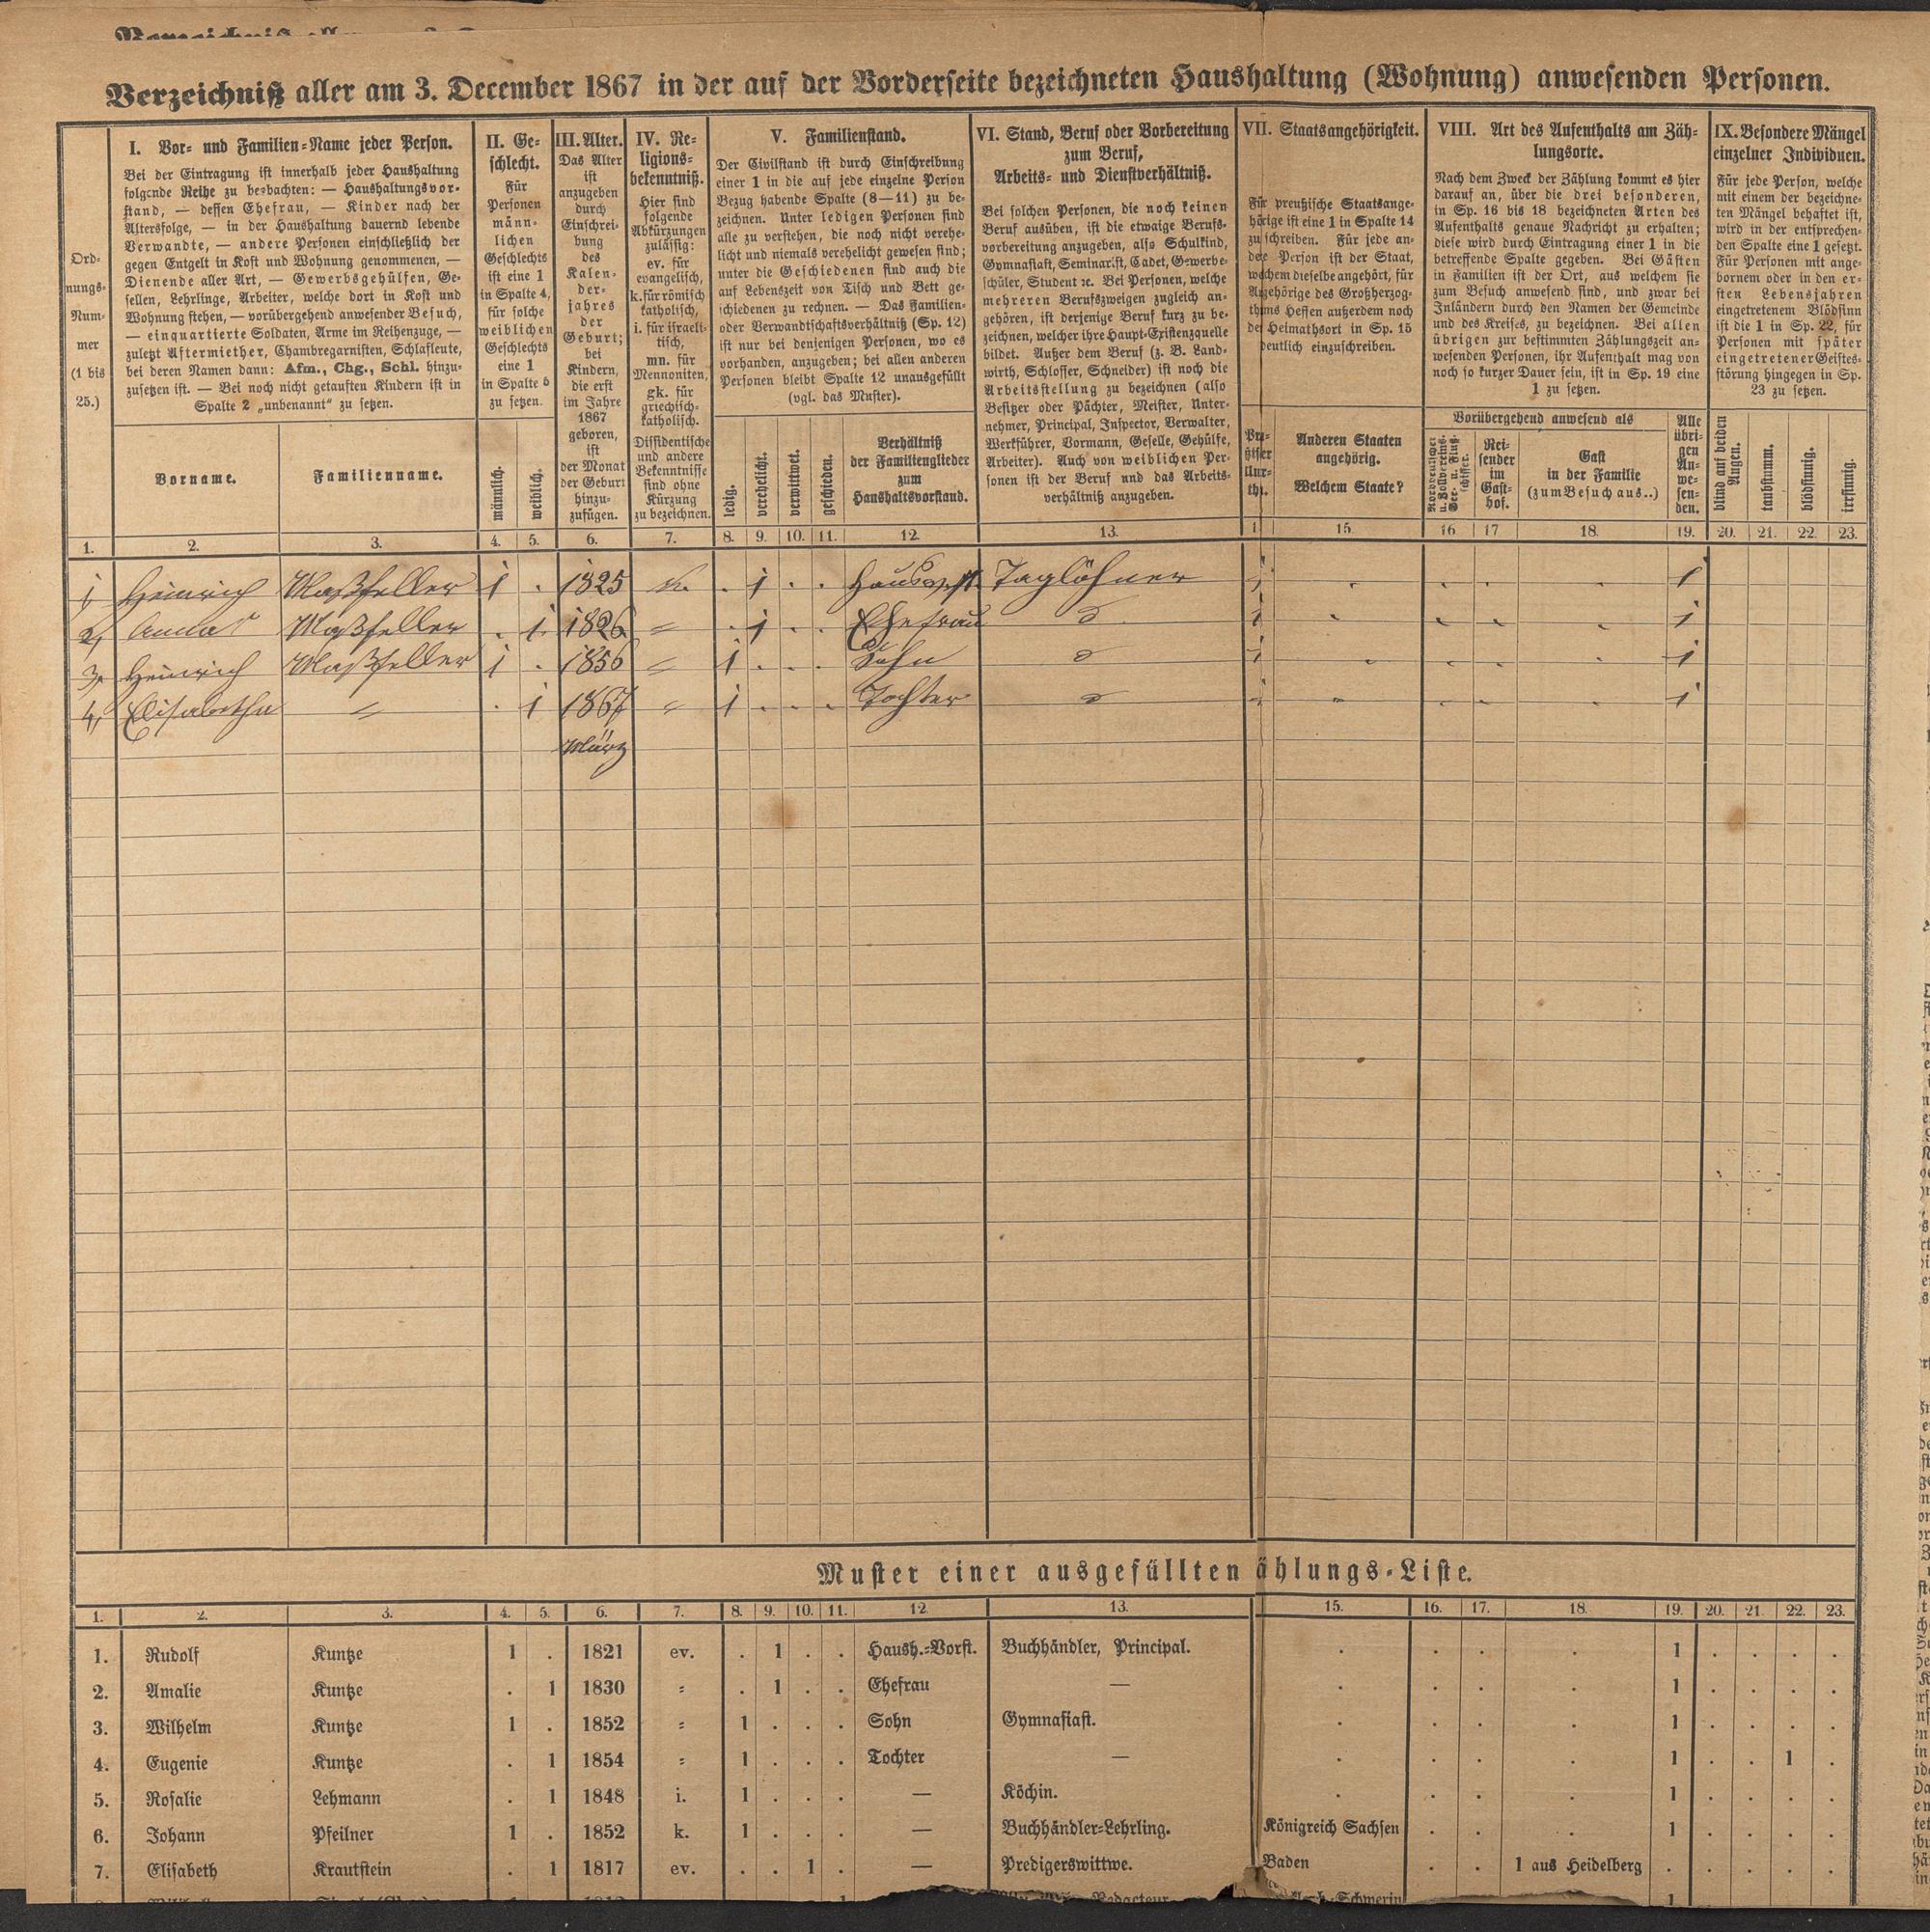 Verzeichniß aller am 3. December 1867 in der auf der Vorderseite bezeichneten Haushaltung (Wohnung) anwesenden Personen.
Ord-
nungs-
Num-
mer
(1 bis
25.)
I. Vor- und Familien-Name jeder Person.
Bei der Eintragung ist innerhalb jeder Haushaltung
folgende Reihe zu beobachten: — Haushaltungsvor-
stand, — dessen Ehefrau, — Kinder nach der
Altersfolge, — in der Haushaltung dauernd lebende
Verwandte, — andere Personen einschließlich der
gegen Entgelt in Kost und Wohnung genommenen, —
Dienende aller Art, — Gewerbsgehülfen, Ge-
sellen, Lehrlinge, Arbeiter, welche dort in Kost und
Wohnung stehen, — vorübergehend anwesender Besuch,
— einquartierte Soldaten, Arme im Reihenzuge, —
zuletzt Aftermiether, Chambregarnisten, Schlafleute,
bei deren Namen dann: Afm., Chg., Schl. hinzu-
zusetzen ist. — Bei noch nicht getauften Kindern ist in
Spalte 2 „unbenannt“ zu setzen.
Vorname.
Familienname.
II. Ge-
schlecht.
Für
Personen
männ-
lichen
Geschlechts
ist eine 1
in Spalte 4,
für solche
weiblichen
Geschlechts
eine 1
in Spalte 5
zu setzen.
männlich.
weiblich.
III. Alter.
Das Alter
ist
anzugeben
durch
Einschrei-
bung
des
Kalen-
der-
jahres
der
Geburt;
bei
Kindern,
die erst
im Jahre
1867
geboren,
ist
der Monat
der Geburt
hinzu-
zufügen.
IV. Re-
ligions-
bekenntniß.
Hier sind
folgende
Abkürzungen
zulässig:
ev. für
evangelisch,
k. für römisch
katholisch,
i. für israeli-
tisch,
mn. für
Mennoniten,
gk. für
griechisch-
katholisch.
Dissidentische
und andere
Bekenntnisse
sind ohne
Kürzung
zu bezeichnen.
V. Familienstand.
Der Civilstand ist durch Einschreibung
einer 1 in die auf jede einzelne Person
Bezug habende Spalte (8—11) zu be-
zeichnen. Unter ledigen Personen sind
alle zu verstehen, die noch nicht verehe-
licht und niemals verehelicht gewesen sind;
unter die Geschiedenen sind auch die
auf Lebenszeit von Tisch und Bett ge-
schiedenen zu rechnen. — Das Familien-
oder Verwandtschaftsverhältniß (Sp. 12)
ist nur bei denjenigen Personen, wo es
vorhanden, anzugeben; bei allen anderen
Personen bleibt Spalte 12 unausgefüllt
(vgl. das Muster).
ledig.
verehelicht.
verwittwet.
geschieden.
Verhältniß
der Familienglieder
zum
Haushaltsvorstand.
VI. Stand, Beruf oder Vorbereitung
zum Beruf,
Arbeits- und Dienstverhältniß.
Bei solchen Personen, die noch keinen
Beruf ausüben, ist die etwaige Berufs-
vorbereitung anzugeben, also Schulkind,
Gymnasiast, Seminarist, Cadet, Gewerbe-
schüler, Student ꝛc. Bei Personen, welche
mehreren Berufszweigen zugleich an-
gehören, ist derjenige Beruf kurz zu be-
zeichnen, welcher ihre Haupt-Existenzquelle
bildet. Außer dem Beruf (z. B. Land-
wirth, Schlosser, Schneider) ist noch die
Arbeitsstellung zu bezeichnen (also
Besitzer oder Pächter, Meister, Unter-
nehmer, Principal, Inspector, Verwalter,
Werkführer, Vormann, Geselle, Gehülfe,
Arbeiter). Auch von weiblichen Per-
sonen ist der Beruf und das Arbeits-
verhältniß anzugeben.
VII. Staatsangehörigkeit.
Für preußische Staatsange-
hörige ist eine 1 in Spalte 14
zu schreiben. Für jede an-
dere Person ist der Staat,
welchem dieselbe angehört, für
Angehörige des Großherzog-
thums Hessen außerdem noch
der Heimathsort in Sp. 15
deutlich einzuschreiben.
Anderen Staaten
angehörig.
Welchem Staate?
VIII. Art des Aufenthalts am Zäh-
lungsorte.
Nach dem Zweck der Zählung kommt es hier
darauf an, über die drei besonderen,
in Sp. 16 bis 18 bezeichneten Arten des
Aufenthalts genaue Nachricht zu erhalten;
diese wird durch Eintragung einer 1 in die
betreffende Spalte gegeben. Bei Gästen
in Familien ist der Ort, aus welchem sie
zum Besuch anwesend sind, und zwar bei
Inländern durch den Namen der Gemeinde
und des Kreises, zu bezeichnen. Bei allen
übrigen zur bestimmten Zählungszeit an-
wesenden Personen, ihr Aufenthalt mag von
noch so kurzer Dauer sein, ist in Sp. 19 eine
1 zu setzen.
Vorübergehend anwesend als
Rei-
sender
im
Gast-
hof.
Gast
in der Familie
(zum Besuch aus..)
Alle
übri-
gen
An-
we-
sen-
den.
IX. Besondere Mängel
einzelner Individuen.
Für jede Person, welche
mit einem der bezeichne-
ten Mängel behaftet ist,
wird in der entsprechen-
den Spalte eine 1 gesetzt.
Für Personen mit ange-
bornem oder in den er-
sten Lebensjahren
eingetretenem Blödsinn
ist die 1 in Sp. 22, für
Personen mit später
eingetretener Geistes-
störung hingegen in Sp.
23 zu setzen.
blind auf beiden
Augen.
taubstumm.
blödsinnig.
irrsinnig.
1. 2. 3. 4. 5. 6. 7. 8. 9. 10. 11. 12. 13. 1 15 16 17 18. 19. 20. 21. 22. 23.
1 Heinrich Maßfeller 1 . 1825 k. . 1 . . Hausvst. Taglöhner 1 . . . . 1
2, Anna Maßfeller . 1. 1826 = . 1 . . Ehefrau 1 . . . . 1
3, Heinrich Maßfeller 1 . 1856 = 1 . . . Sohn 1 . . . . 1
4, Elisabetha = . 1 1867 = 1 . . . Tochter 1 . . . . 1
März
Muster einer ausgefüllten ählungs-Liste.
1. 2. 3. 4. 5. 6. 7. 8. 9. 10. 11. 12 13. 15. 16. 17. 18. 19. 20. 21. 22. 23.
1. Rudolf Kuntze 1 . 1821 ev. . 1 . . Haush.-Vorst. Buchhändler, Principal. . . . . 1 . . . .
2. Amalie Kuntze . 1 1830 = . 1 . . Ehefrau — . . . . 1 . . . .
3. Wilhelm Kuntze 1 . 1852 = 1 . . . Sohn Gymnasiast. . . . . 1 . . . .
4. Eugenie Kuntze . 1 1854 = 1 . . . Tochter — . . . . 1 . . 1 .
5. Rosalie Lehmann . 1 1848 i. 1 . . . — Köchin. . . . . 1 . . . .
6. Johann Pfeilner 1 . 1852 k. 1 . . . — Buchhändler-Lehrling. Königreich Sachsen . . . 1 . . . .
7. Elisabeth Krautstein . 1 1817 ev. . . 1 . — Predigerswittwe. Baden . . 1 aus Heidelberg . . . . .